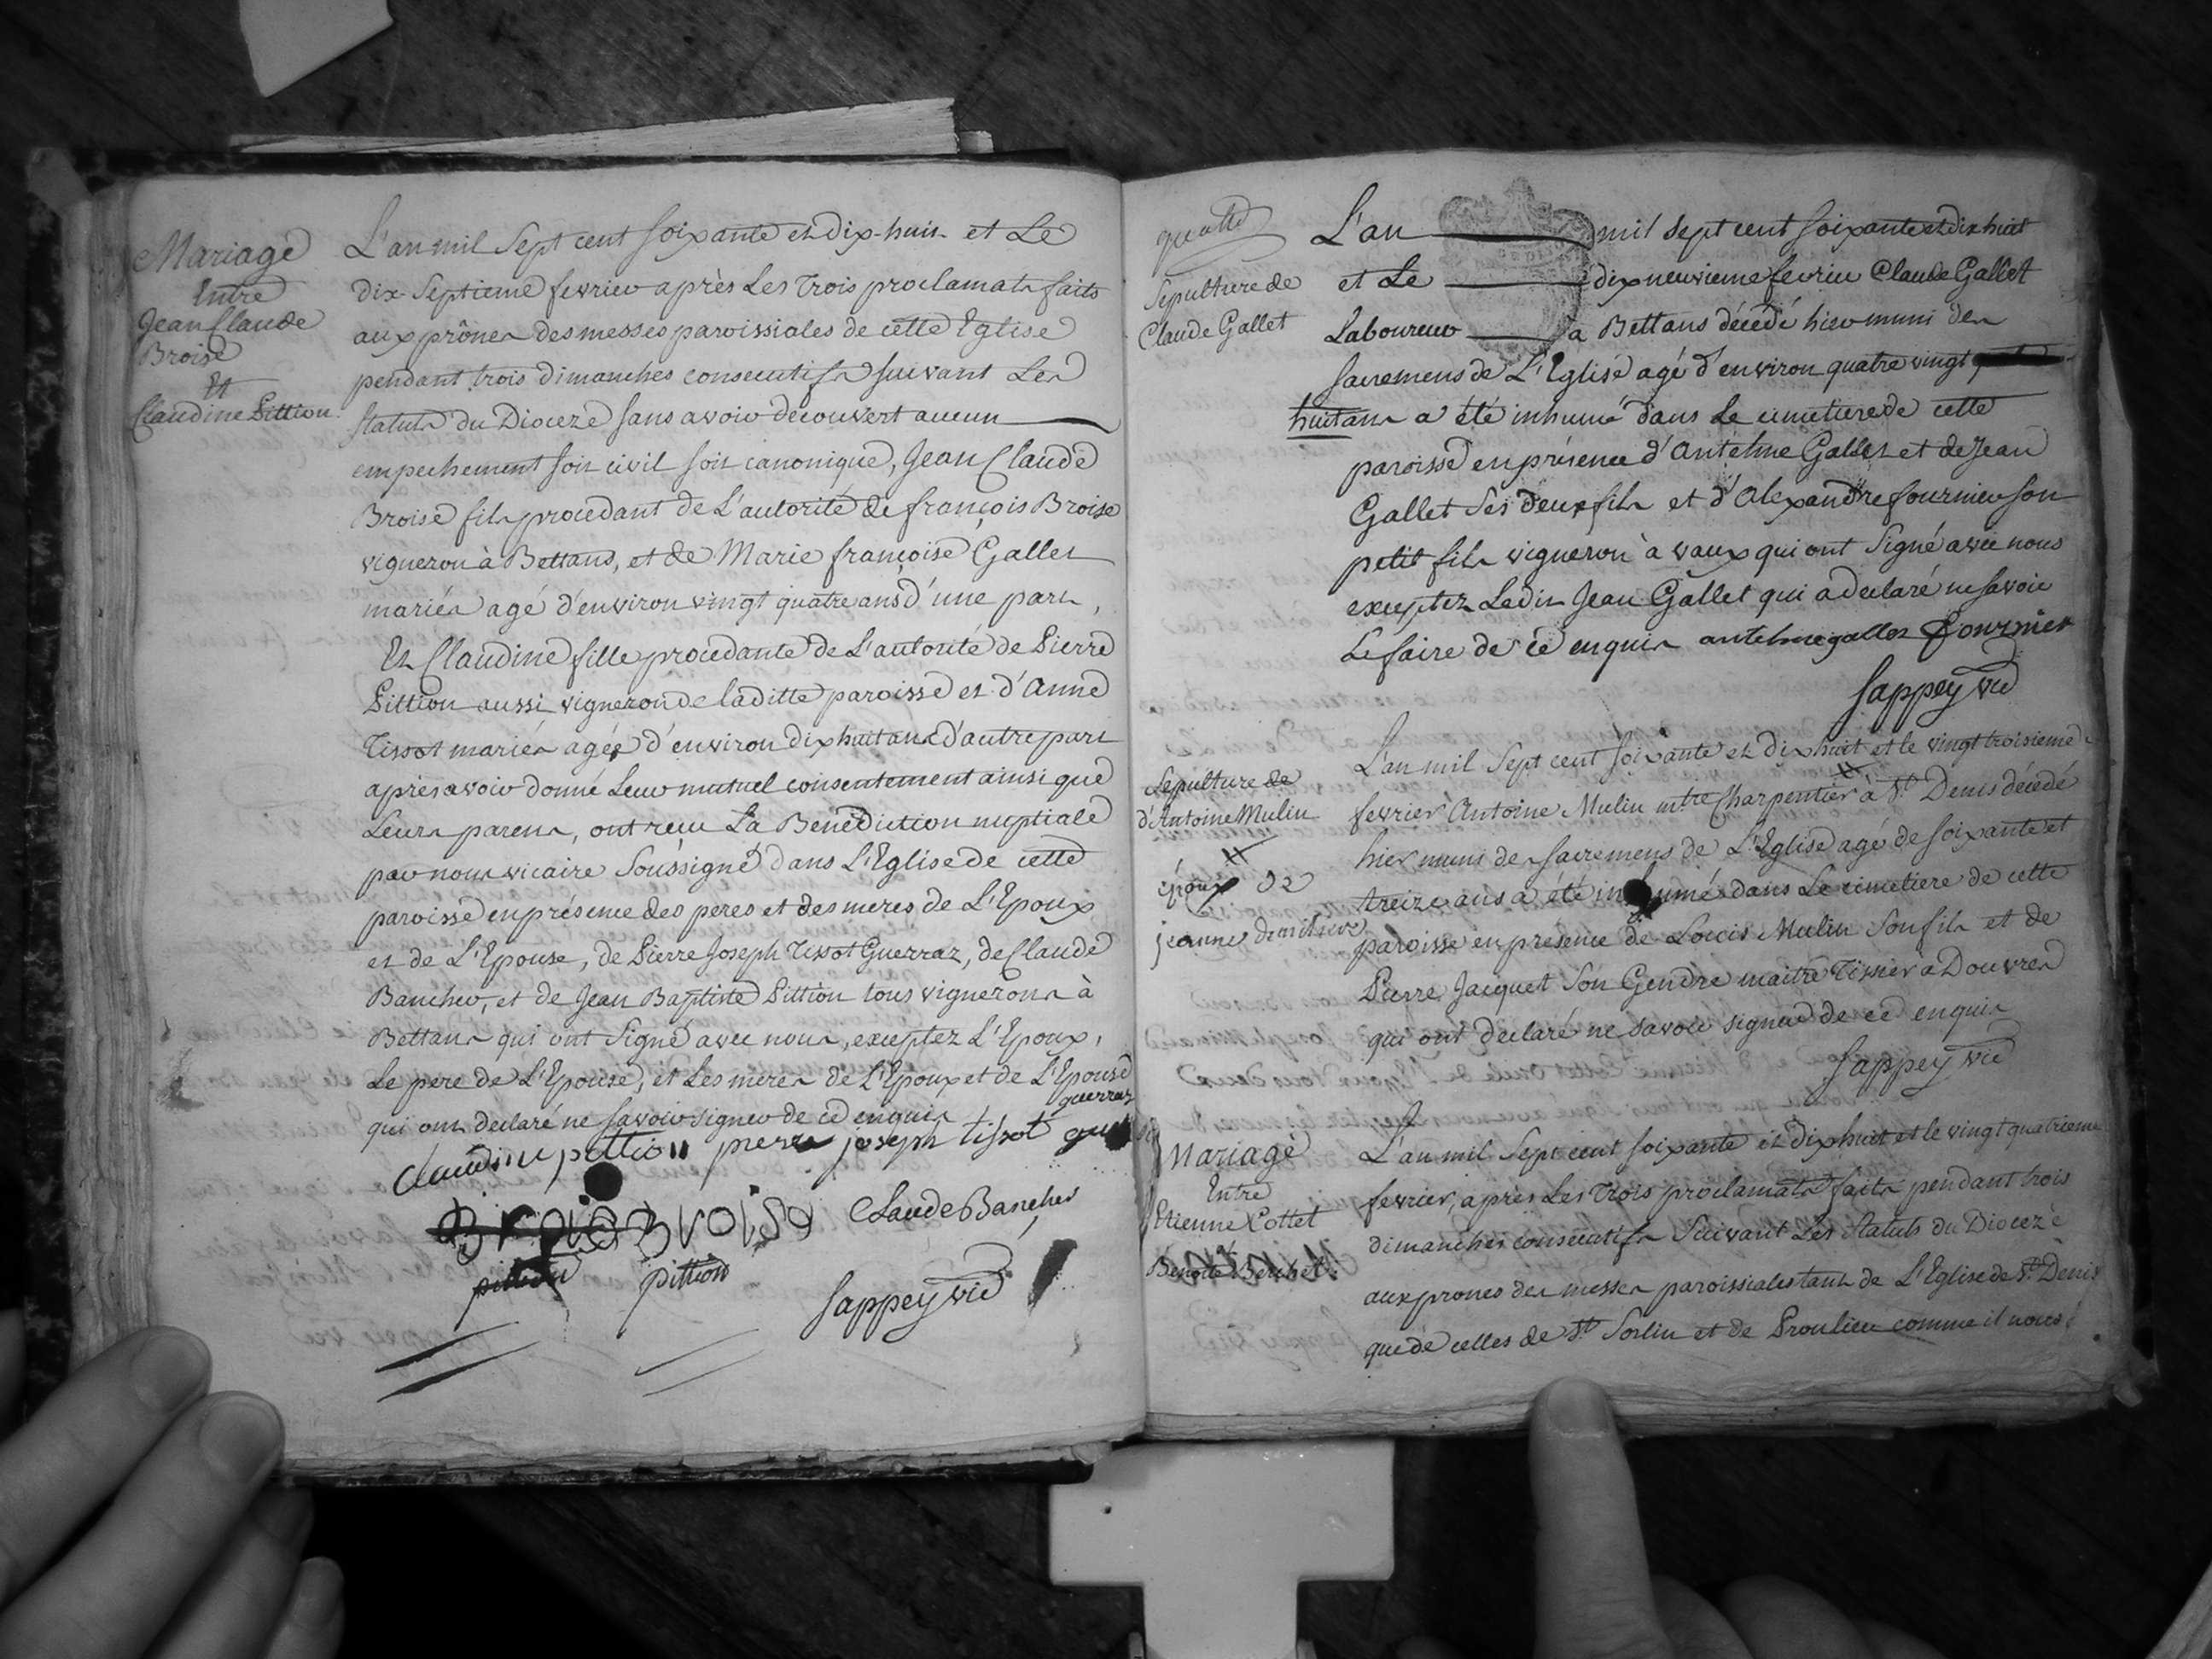 Mariage
Entre
Jean Claude
Broise
Et
Claudine Pittion
L'an mil Sept cent soixante et dix-huit et Le
dix-Septieme fevrier après Les Trois proclamats faits
aux prônes des messes paroissiales de cette Eglise
pendant trois dimanches consecutifs suivant Les
statuts du Dioceze sans avoir découvert aucun
empechement soit civil soit canonique, Jean Claude
Broise fils procedant de L'autorité de françois Broise
vigneron à Bettans, et de Marie françoise Gallet
mariés agé d'environ vingt quatre ans d'une part,
Et Claudine fille procedante de L'autorité de Pierre
Pittion aussi vigneron de laditte paroisse et d'Anne
Tissot mariés agée d'environ dix huit ans d'autre part
après avoir donné Leur mutuel consentement ainsi que
Leurs parens, ont reçu La Bénédiction nuptiale
par nous vicaire Soussigné dans L'Eglise de cette
paroisse en présence des peres et des meres de L'Epoux
et de L'Epouse, de Pierre Joseph Tissot Guerraz, de Claude
Bancher, et de Jean Baptiste Pittion tous vignerons à
Bettans qui ont Signé avec nous, exceptez L'Epoux,
Le pere de L'Epouse, et Les meres de L'Epoux et de L'Epouse
qui ont declaré ne savoir signer de ce enquis
guerraz
claudine pittion pierre joseph tissot
Broise Claude Bancher
pittion pittion
Sappey vic
quatre
Sepulture de
Claude Gallet
L'an mil sept cent soixante et dix huit
et Le dix neuvieme fevrier Claude Gallet
Laboureur a Bettans décédé hier muni des
sacremens de L'Eglise agé d'environ quatre vingt
huit ans a été inhumé dans Le cimetiere de cette
paroisse en présence d'Antelme Gallet et de Jean
Gallet Ses deux fils et d'Alexandre fournier son
petit fils vigneron à vaux qui ont Signé avec nous
exceptez Ledit Jean Gallet qui a declaré ne savoir
Le faire de ce enquis antelme gallet fournier
Sappey vic
Sepulture de
d'Antoine Mulin
époux de
jeanne
L'an mil Sept cent soixante et dix huit et le vingt troisieme
fevrier Antoine Mulin mtre Charpentier à St Denis décédé
hier muni des sacremens de L'Eglise agé de soixante et
treize ans a été inhumé dans Le cimetiere de cette
paroisse en présence de Louis Mulin Son fils et de
Pierre Jacquet Son Gendre maitre Tissier a Douvres
qui ont declaré ne savoir signer de ce enquis
Sappey vic
Mariage
Entre
Etienne Cottet
Et
Benoite Berchet
L'an mil Sept cent soixante et dix huit et le vingt quatrieme
fevrier, après Les Trois proclamats faits pendant trois
dimanches consecutifs Suivant Les Statuts du Dioceze
aux prones des messes paroissiales tant de L'Eglise de St Denis
que de celles de St Sorlin et de Proulieu comme il nous